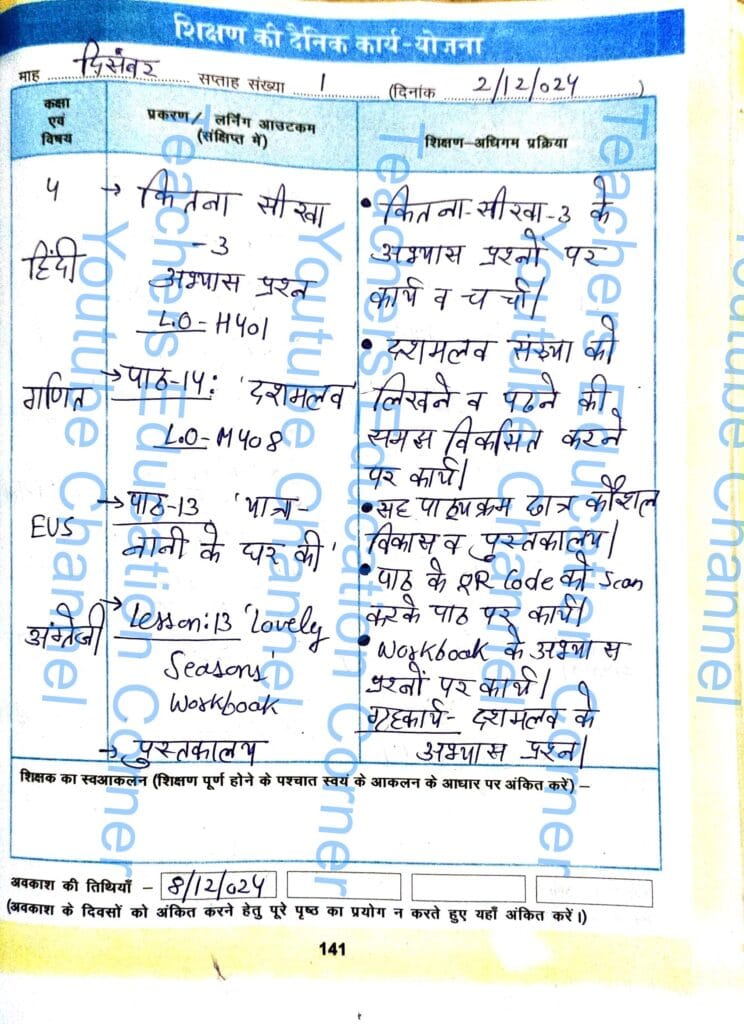 शिक्षण की दैनिक कार्य-योजना
माह दिसंबर सप्ताह संख्या 1 (दिनांक 2/12/024)
कक्षा एवं विषय
प्रकरण/ लर्निंग आउटकम
(संक्षिप्त में)
शिक्षण-अधिगम प्रक्रिया
4
→ कितना सीखा
-3
हिंदी
अभ्यास प्रश्न
L.O-H401
• कितना-सीखा-3 के
अभ्यास प्रश्नों पर
कार्य व चर्चा।
गणित
→ पाठ-14: 'दशमलव'
L.O-M408
• दशमलव संख्या को
लिखने व पढने की
समझ विकसित करने
पर कार्य।
EVS
→ पाठ-13 'यात्रा-
नानी के घर की'
• सह पाठ्यक्रम छात्र कौशल
विकास व पुस्तकालय।
• पाठ के QR Code को Scan
करके पाठ पर कार्य।
अंग्रेजी
→ Lesson:13 'Lovely
Seasons'
Workbook
• Workbook के अभ्यास
प्रश्नों पर कार्य।
→ पुस्तकालय
गृहकार्य- दशमलव के
अभ्यास प्रश्न।
शिक्षक का स्वआकलन (शिक्षण पूर्ण होने के पश्चात स्वयं के आकलन के आधार पर अंकित करें) –
अवकाश की तिथियाँ – 8/12/024
(अवकाश के दिवसों को अंकित करने हेतु पूरे पृष्ठ का प्रयोग न करते हुए यहाँ अंकित करें।)
141
Teachers Education Corner
Youtube Channel
Teachers Education Corner
Youtube Channel
Teachers Education Corner
Youtube Channel